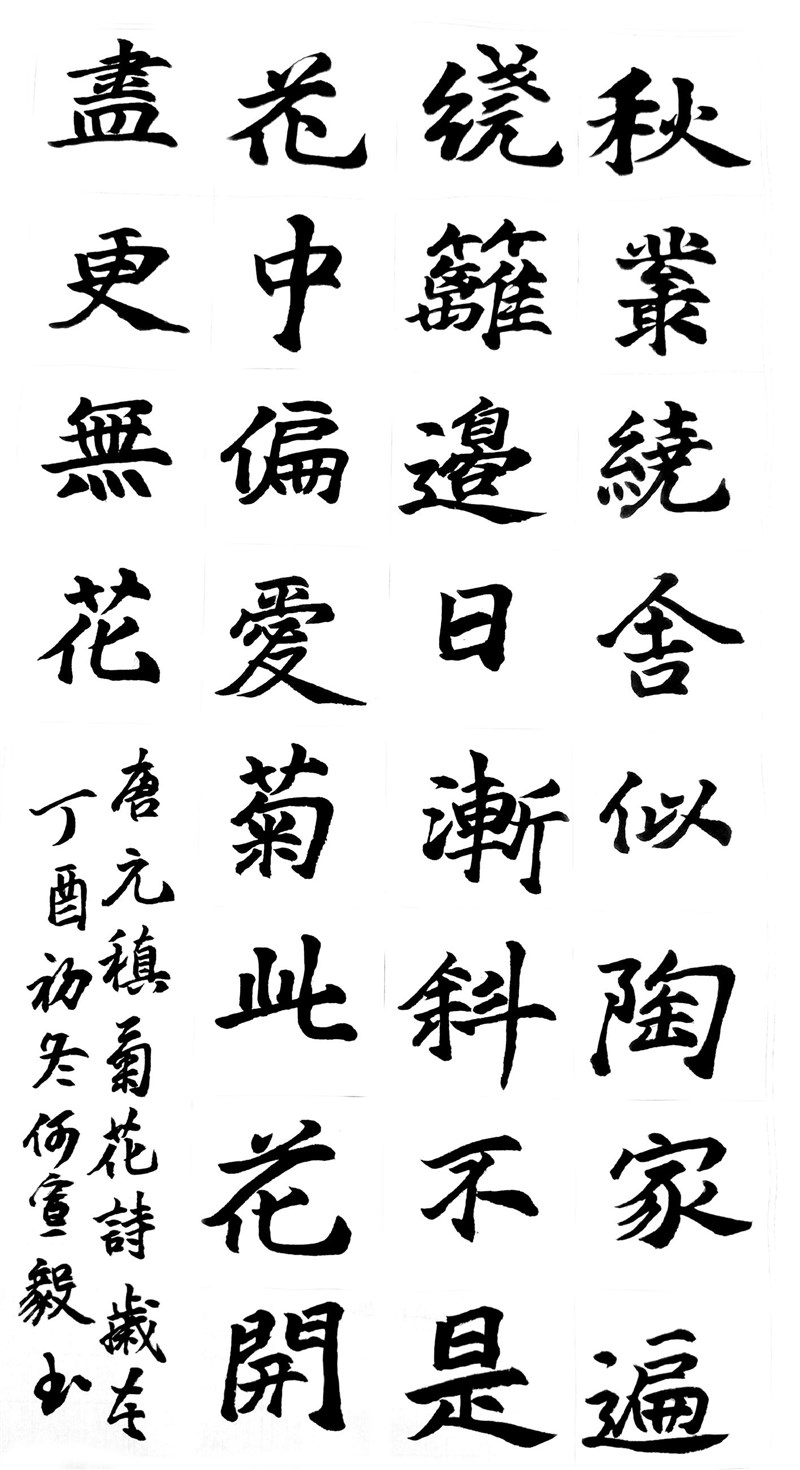 秋叢繞舍似陶家遍
绕籬邉日漸斜不是
花中偏愛菊此花開
盡更無花
唐元稹菊花詩歲在
丁酉初冬何宣毅书